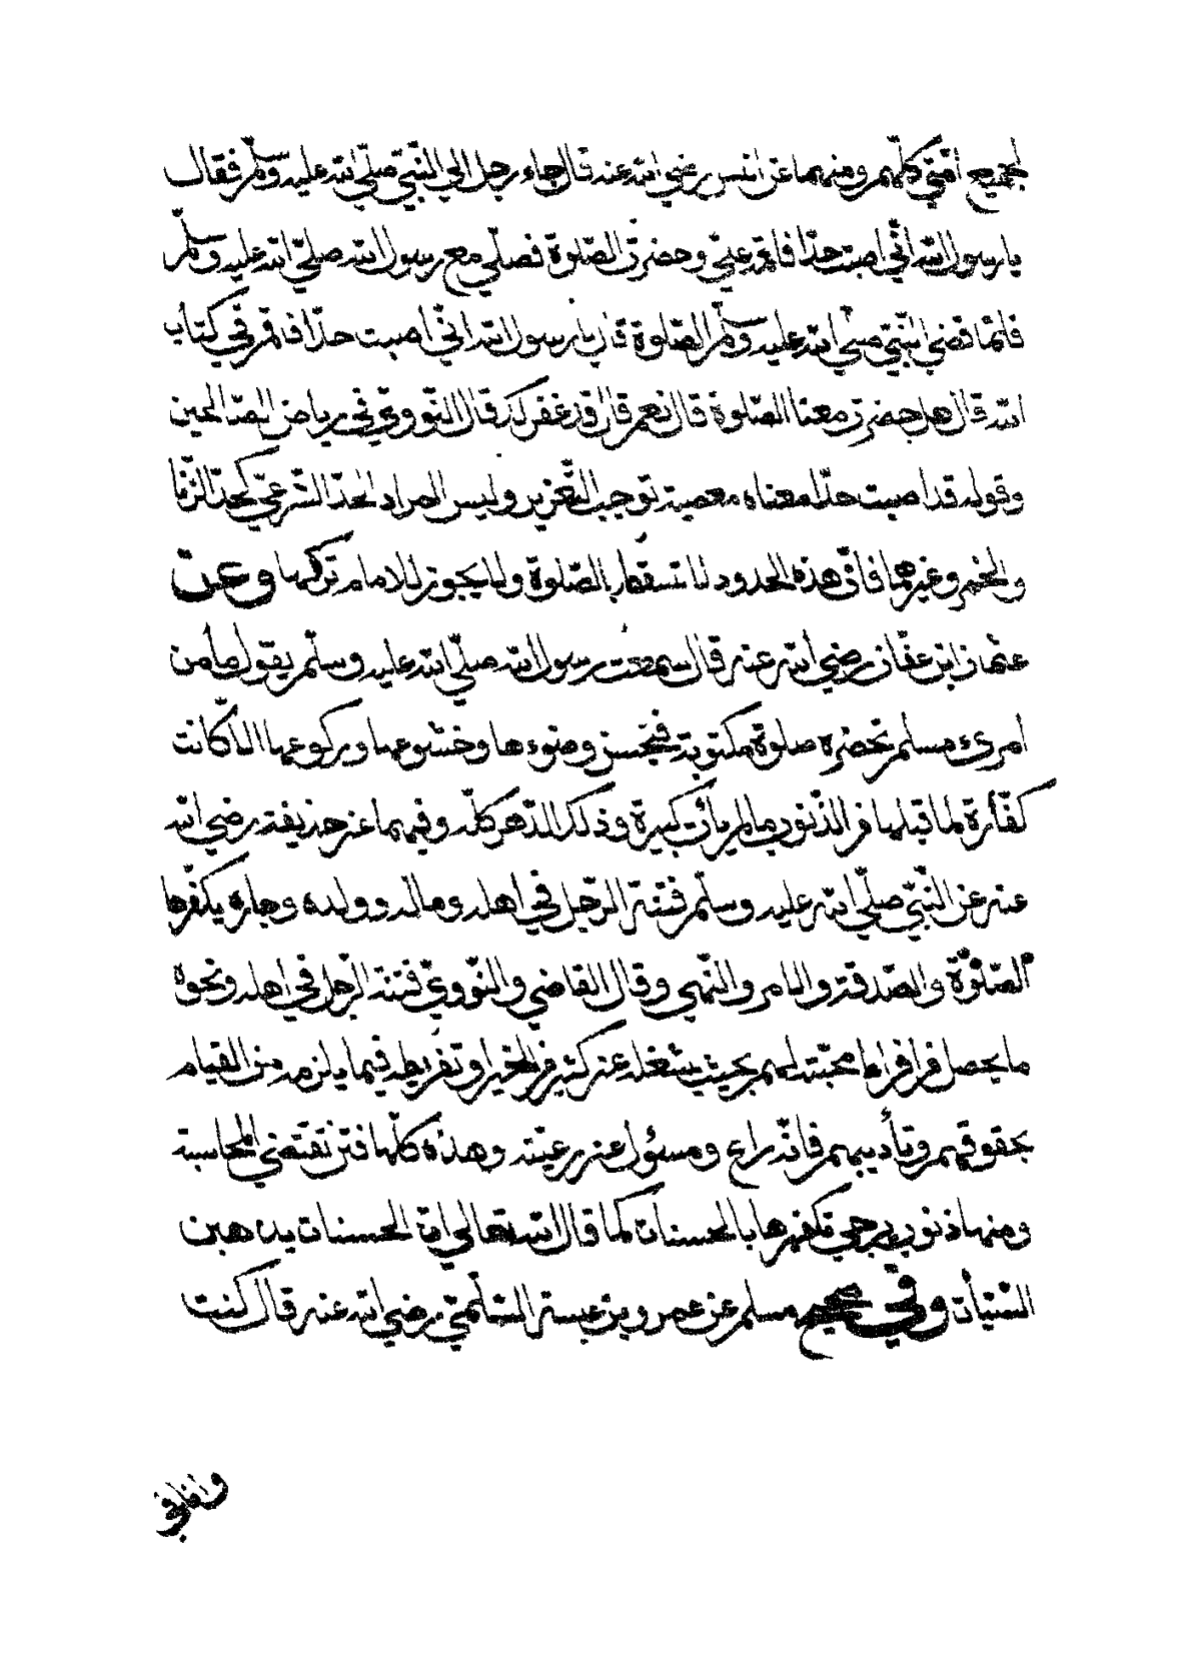 لجميع أمّتي كلّهم ومنهما عن انس رضي الله عنه قال جاء رجل الي النّبيّ صلّي الله عليه وسلّم فقال
يا رسول الله انّي اصبت حدّا فاقمه عليّ وحضرت الصّلوة فصلّي مع رسول الله صلّي الله عليه وسلّم
فلمّا قضي النّبيّ صلّي الله عليه وسلّم الصّلوة قال يا رسول الله انّي اصبت حدّا فاقم فيّ كتاب
الله قال هل حضرت معنا الصّلوة قال نعم قال قد غفر لك قال النّوويّ في رياض الصّالحين
وقوله قد اصبت حدّا معناه معصية توجب التّعزير وليس المراد الحدّ الشّرعيّ كحدّ الزّنا
والخمر وغيرهما فانّ هذه الحدود لا تسقط بالصّلوة ولا يجوز للامام تركها وعن
عثمان ابن عفّان رضي الله عنه قال سمعت رسول الله صلّي الله عليه وسلّم يقول ما من
امرئ مسلم تحضره صلوة مكتوبة فيحسن وضوءها وخشوعها وركوعها الا كانت
كفّارة لما قبلها من الذّنوب ما لم يأت كبيرة وذلك الدّهر كلّه وفيهما عن حذيفة رضي الله
عنه عن النّبيّ صلّي الله عليه وسلّم فتنة الرّجل في اهله وماله وولده وجاره يكفّرها
الصّلوة والصّدقة والامر والنّهي وقال القاضي والنّوويّ فتنة الرّجل في اهله ونحوه
ما يحصل من افراط محبّته لهم بحيث يشغله عن كثير من الخير او تفريطه فيما يلزمه من القيام
بحقوقهم وتأديبهم فانّه راع ومسؤل عن رعيّته وهذه كلّها فتن تقتضي المحاسبة
ومنها ذنوب يرجي تكفيرها بالحسنات كما قال الله تعالي انّ الحسنات يذهبن
السّيّأت وفي صحيح مسلم عن عمرو بن عبسة السّلميّ رضي الله عنه قال كنت
وانا في